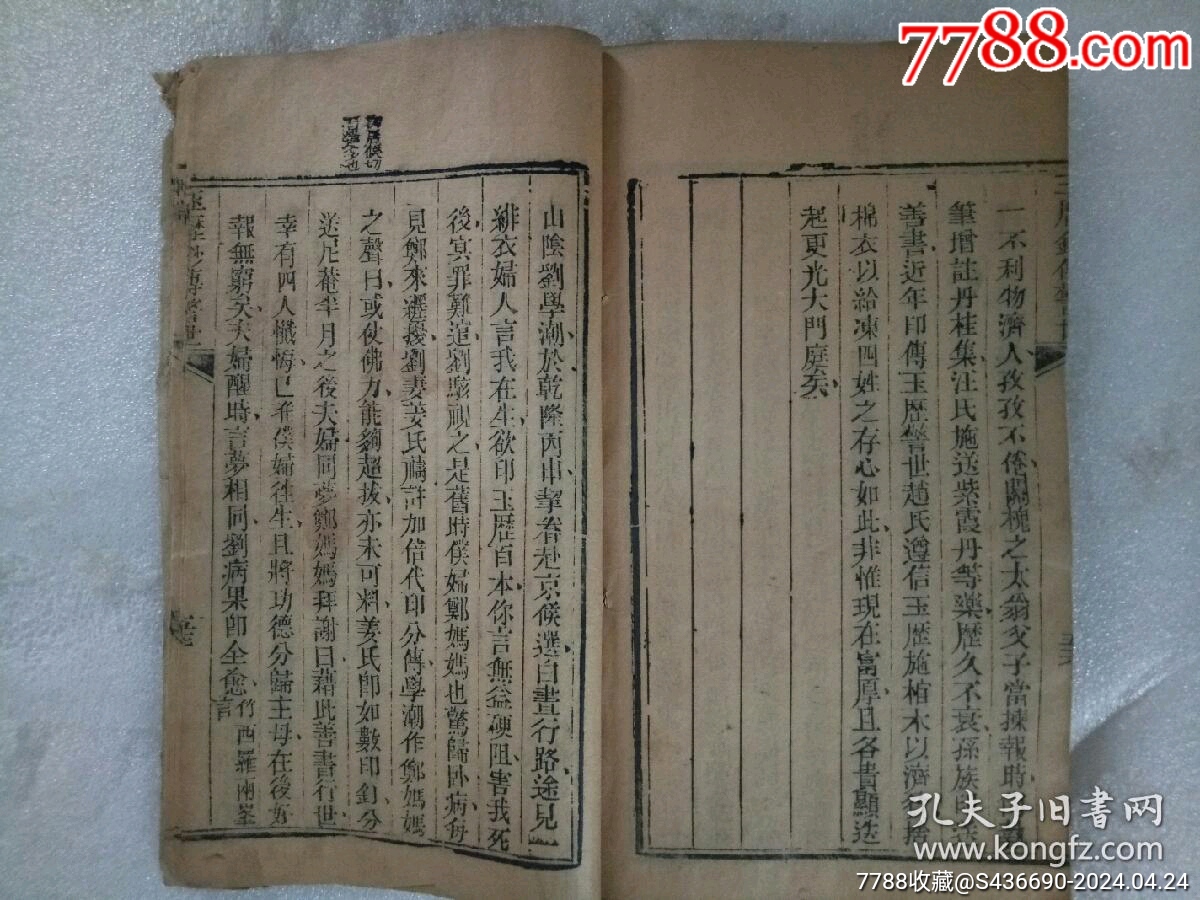 7788.com
一不利物濟人孜孜不倦閣槐之太翁父子當揀報時
筆增註丹桂集汪氏施送紫霞丹等藥歷久不衰孫族
善書近年印傳玉歷警世趙氏遵信玉歷施棺木以濟
棉衣以給凍四姓之存心如此非惟現在富厚且各貴顯迭
起更光大門庭矣
山陰劉學潮於乾隆丙申挈眷赴京候選白晝行路途見一
緋衣婦人言我在生欲印玉歷百本你言無益硬阻害我死
後冥罪難逭劉駭視之是舊時僕婦鄭媽媽也驚歸卧病每
見鄭來纏擾劉妻姜氏禱許加倍代印分傳學潮作鄭媽媽
之聲曰或仗佛力能夠超拔亦未可料姜氏即如數印釘分
送尼菴半月之後夫婦同夢鄭媽媽拜謝曰藉此善書行世
幸有四人懺悔已准僕婦往生且將功德分歸主母在後好
報無窮矣夫婦醒時言夢相同劉病果即全愈 竹西羅兩峯言
孔夫子旧书网
www.kongfz.com
7788收藏@S436690-2024.04.24